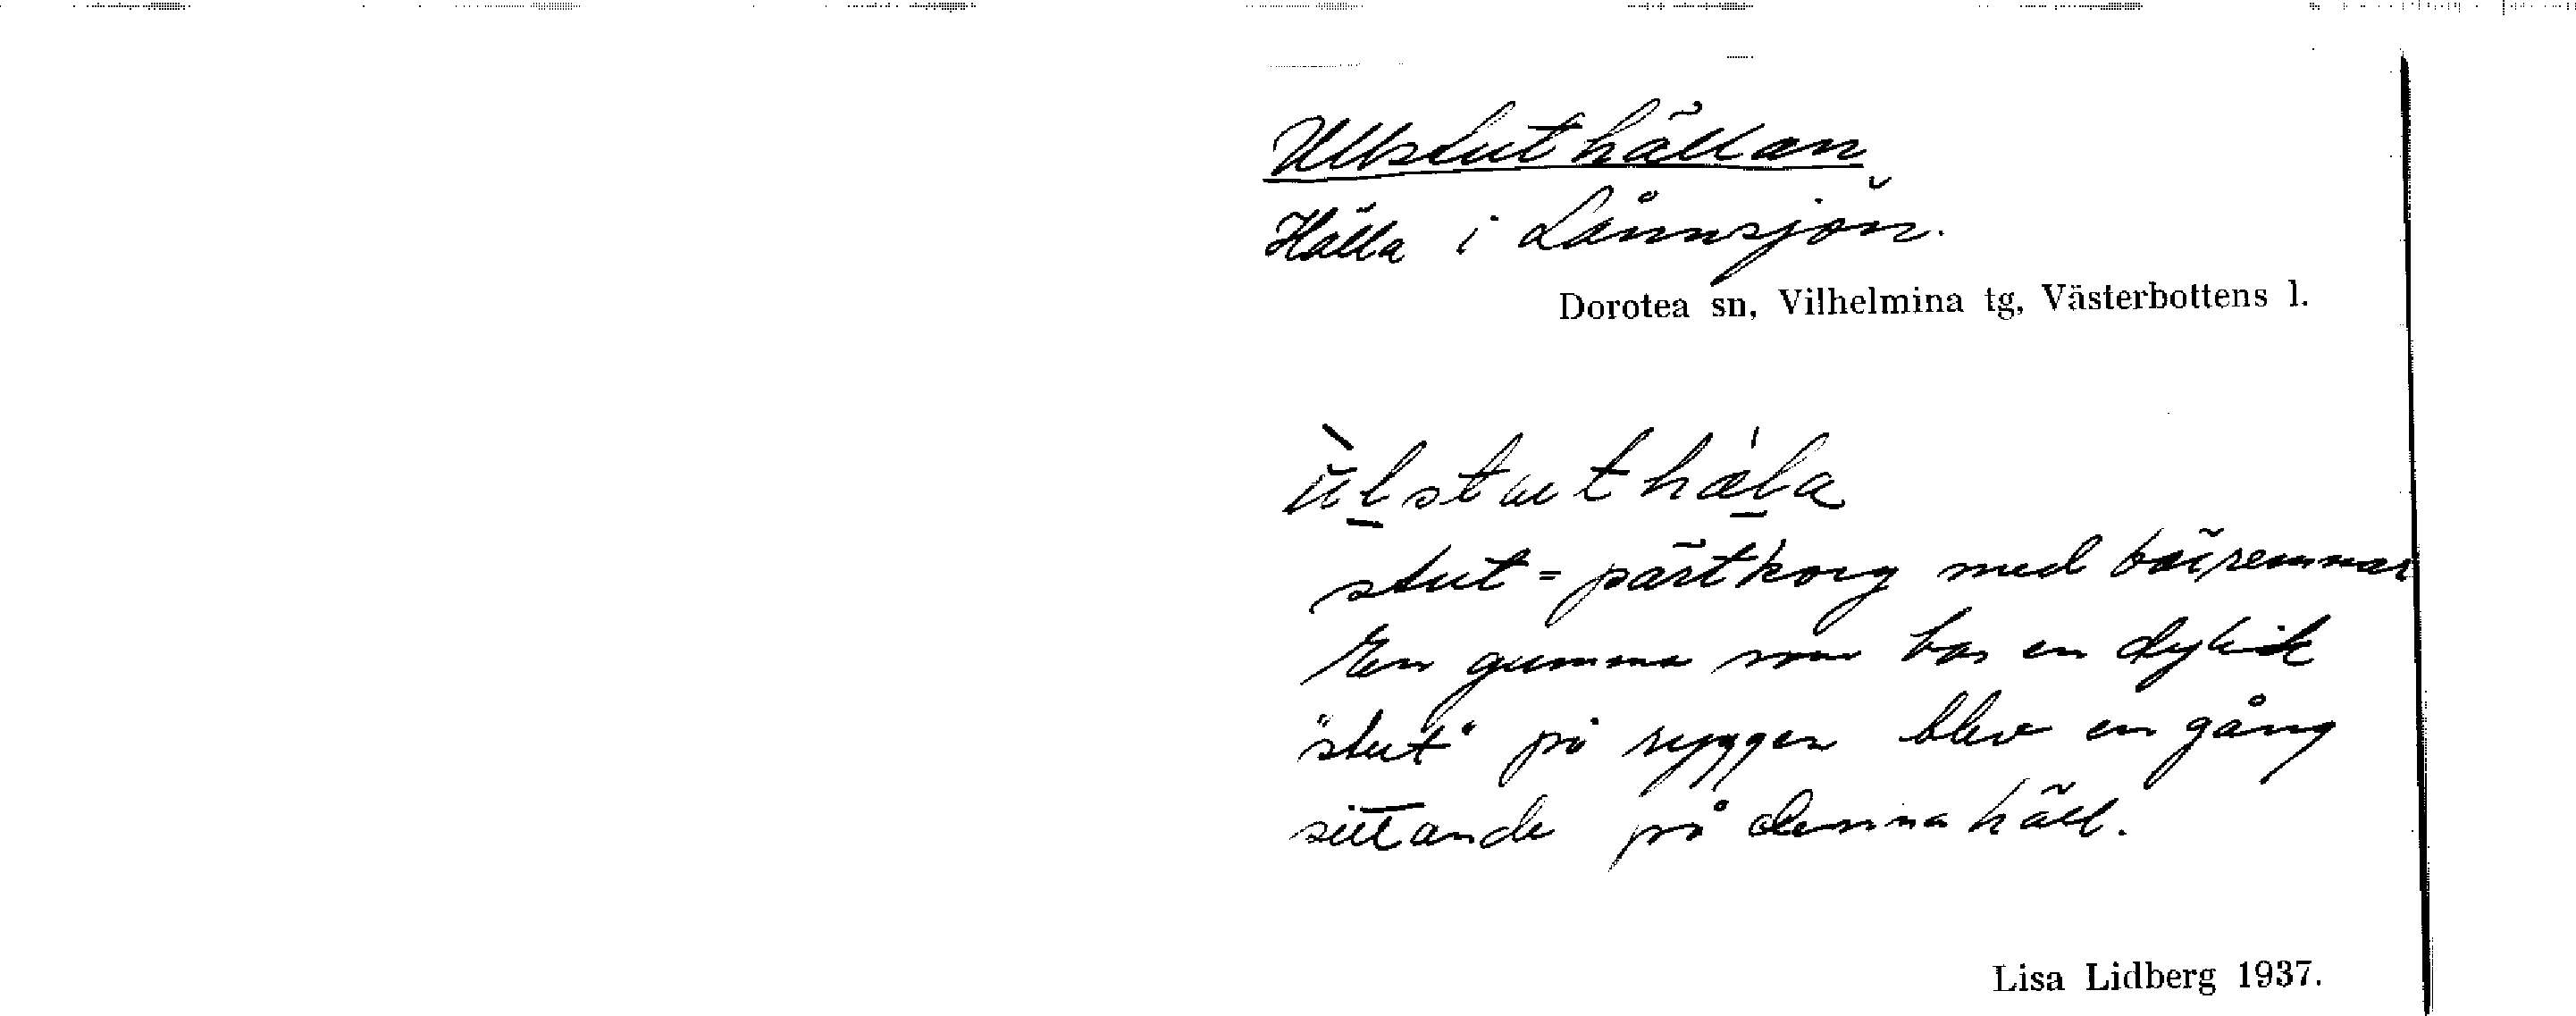 Ullstuthällan
Hälla i Lånnsjön.
Dorotea sn, Vilhelmina tg, Västerbottens l.
stut = pärtkorg med bärremmar
En gumma som bar en dylik
"stut" på ryggen blev en gång
sittande på denna häll.
Lisa Lidberg 1937.